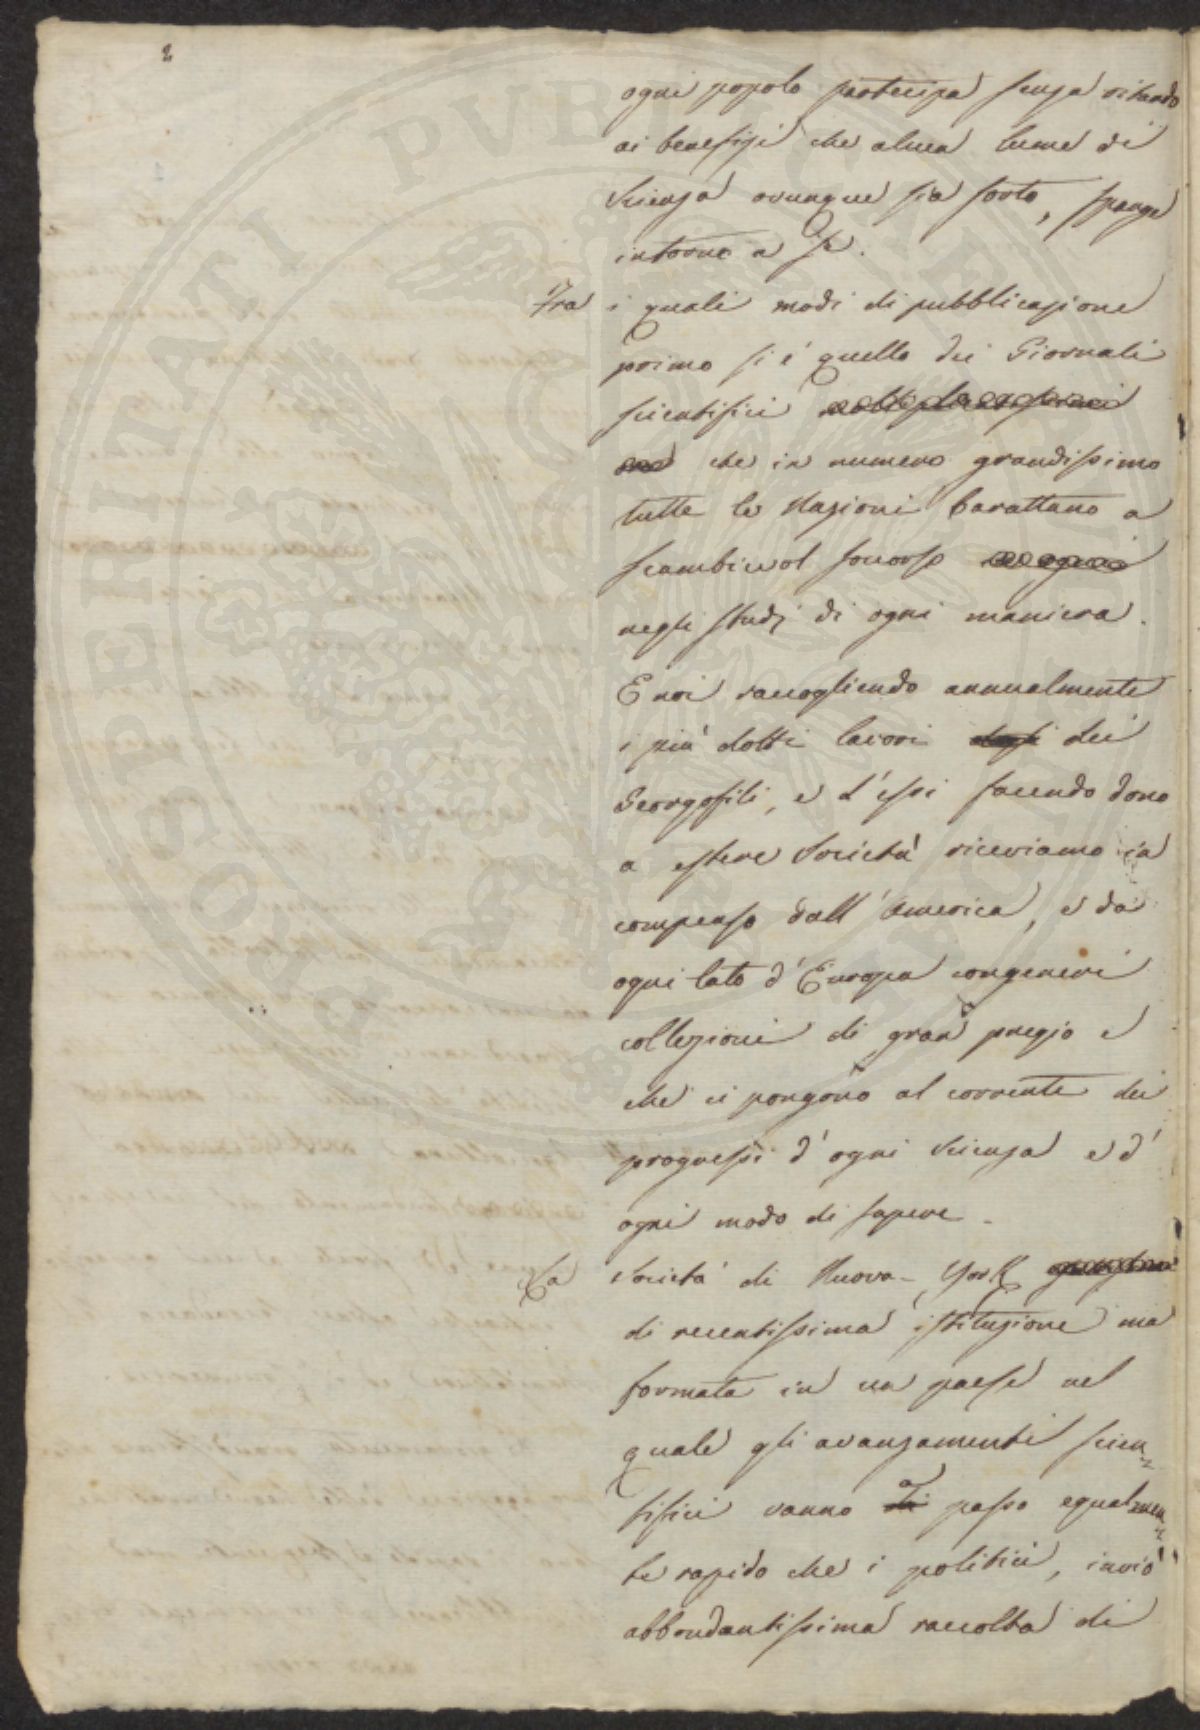 2
ogni popolo partecipa senza ritardo
ai benefizi che alcun lume di
Scienza ovunque sia sorto, spange
intorno a se.
Fra i quali modi di pubblicazione
primo si è quello dei Giornali
scientifici
che in numero grandissimo
tutte le Nazioni barattano a
scambievol soccorso
negli studj di ogni maniera.
E noi raccogliendo annualmente
i più dotti lavori degli dei
Georgofili, e d'essi facendo dono
a estere Società riceviamo in
compenso dall'America, e da
ogni lato d'Europa congeneri
collezioni di gran pregio e
che ci pongono al corrente dei
progressi d'ogni Scienza e d'
ogni modo di sapere.
La Società di Nuova-York
di recentissima istituzione ma
formata in un paese nel
quale gli avanzamenti scien=
tifici vanno di passo egualmen=
te rapido che i politici, inviò
abbondantissima raccolta di
POSPERITATI PVBLICAE